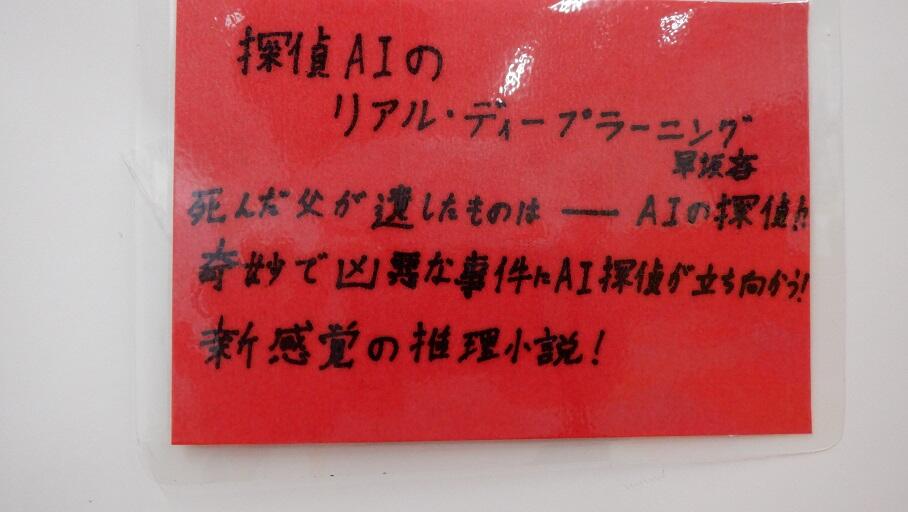 探偵AIの
リアル・ディープラーニング
早坂吝
死んだ父が遺したものは ― AIの探偵!!
奇妙で凶悪な事件にAI探偵が立ち向かう!
新感覚の推理小説!